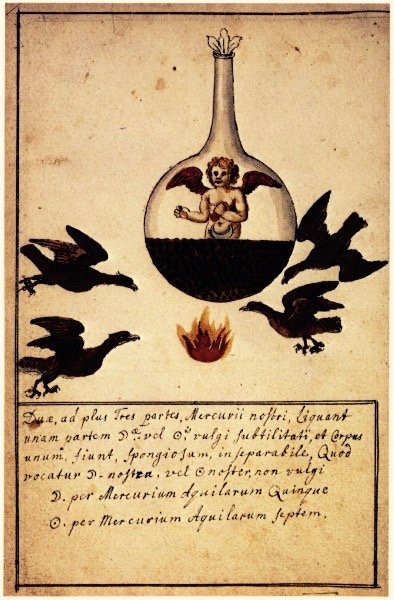 Duæ, ad plus Tres partes, Mercurii nostri, liquant
unam partem D.æ vel ☉.is vulgi subtilitati, et Corpus
unum, fiunt, spongiosum, inseparabile, Quod
vocatur D- nostra, vel ☉ noster, non vulgi
D. per Mercurium Aquilarum Quinque
☉. per Mercurium Aquilarum septem.